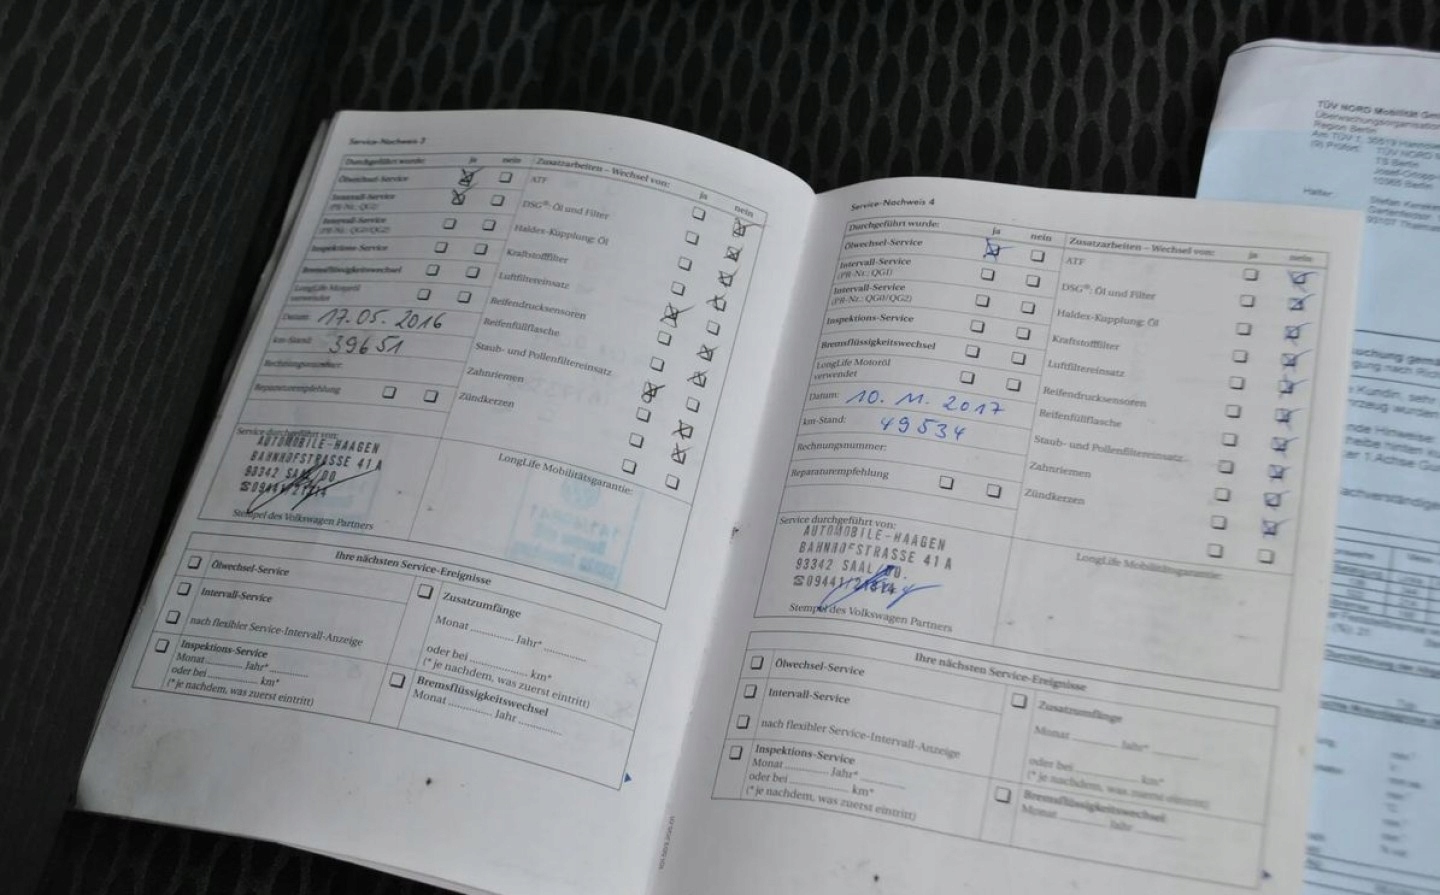 Service-Nachweis 3
Durchgeführt wurde: ja nein
Ölwechsel-Service
Intervall-Service
(PR-Nr.: QG1)
Intervall-Service
(PR-Nr.: QG0/QG2)
Inspektions-Service
Bremsflüssigkeitswechsel
LongLife Motoröl
verwendet
Datum: 17.05.2016
km-Stand: 39651
Rechnungsnummer:
Reparaturempfehlung
Zusatzarbeiten – Wechsel von: ja nein
ATF
DSG®: Öl und Filter
Haldex-Kupplung: Öl
Kraftstofffilter
Luftfiltereinsatz
Reifendrucksensoren
Reifenfüllflasche
Staub- und Pollenfiltereinsatz
Zahnriemen
Zündkerzen
Service durchgeführt von:
AUTOMOBILE-HAAGEN
BAHNHOFSTRASSE 41 A
93342 SAAL/DO.
☎09441/21214
Stempel des Volkswagen Partners
LongLife Mobilitätsgarantie:
Ihre nächsten Service-Ereignisse
Ölwechsel-Service
Intervall-Service
nach flexibler Service-Intervall-Anzeige
Inspektions-Service
Monat ............ Jahr* ............
oder bei ............ km*
(* je nachdem, was zuerst eintritt)
Zusatzumfänge
Monat ............ Jahr* ............
oder bei ............ km*
(* je nachdem, was zuerst eintritt)
Bremsflüssigkeitswechsel
Monat ............ Jahr ............
Service-Nachweis 4
Durchgeführt wurde: ja nein
Ölwechsel-Service
Intervall-Service
(PR-Nr.: QG1)
Intervall-Service
(PR-Nr.: QG0/QG2)
Inspektions-Service
Bremsflüssigkeitswechsel
LongLife Motoröl
verwendet
Datum: 10.11.2017
km-Stand: 49534
Rechnungsnummer:
Reparaturempfehlung
Zusatzarbeiten – Wechsel von: ja nein
ATF
DSG®: Öl und Filter
Haldex-Kupplung: Öl
Kraftstofffilter
Luftfiltereinsatz
Reifendrucksensoren
Reifenfüllflasche
Staub- und Pollenfiltereinsatz
Zahnriemen
Zündkerzen
Service durchgeführt von:
AUTOMOBILE-HAAGEN
BAHNHOFSTRASSE 41 A
93342 SAAL/DO.
☎09441/21214
Stempel des Volkswagen Partners
LongLife Mobilitätsgarantie:
Ihre nächsten Service-Ereignisse
Ölwechsel-Service
Intervall-Service
nach flexibler Service-Intervall-Anzeige
Inspektions-Service
Monat ............ Jahr* ............
oder bei ............ km*
(* je nachdem, was zuerst eintritt)
Zusatzumfänge
Monat ............ Jahr* ............
oder bei ............ km*
(* je nachdem, was zuerst eintritt)
Bremsflüssigkeitswechsel
Monat ............ Jahr ............
TÜV NORD Mobilität
Region Berlin
TÜV NORD
TS Berlin
10965 Berlin
Halter: